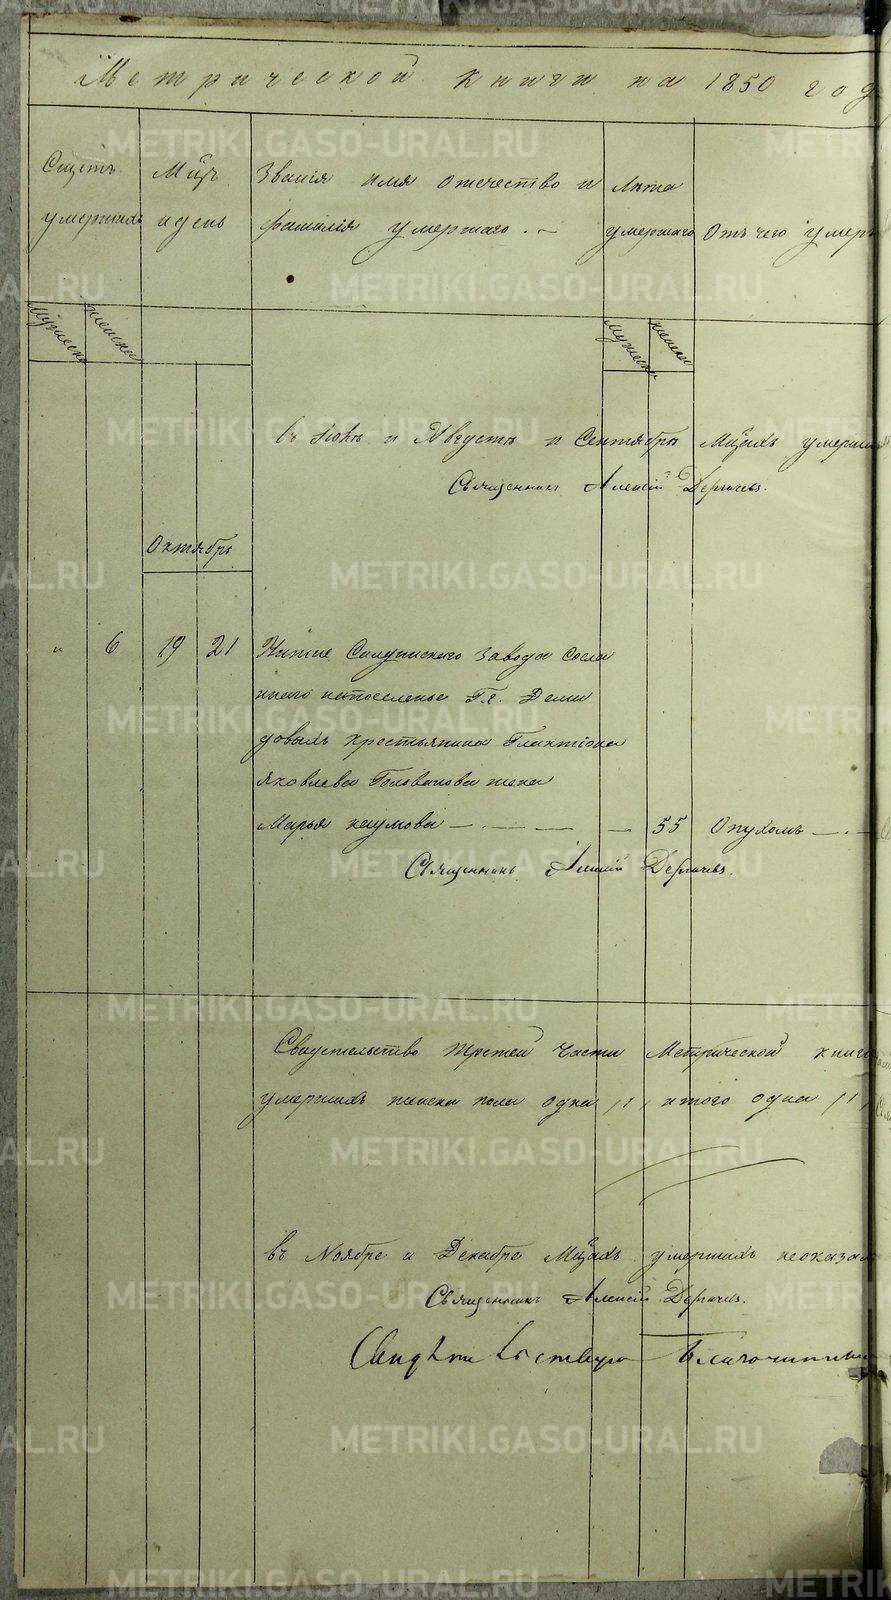 Метрической книги на 1850 год
Счетъ умершихъ
Мцъ и день
Званія имя отечество и фамилія умершаго. —
Лѣта умершаго
Отъ чего умеръ
Мужеска
женска
мужеска
женска
въ Іюлѣ и Августѣ и Сентябрѣ Мцахъ умерших
Священникъ Алексій Дергачевъ.
Октябрь
" 6 19 21 Нижне Салдинскаго завода Сосла
ннаго напоселенье Гг. Деми
довымъ крестьянина Галактіона
Яковлева Голованова жена
Марья Наумова — . — — — — 55 Опухомъ — . —
Священникъ Алексій Дергачевъ.
Свидетельство третей части Метрической книги
умершихъ женска пола одна /1/ итого одна /1/
въ Ноябре и Декабре Мцахъ умершихъ неоказа
Священникъ Алексій Дергачевъ.
Свидѣтельствую Благочинный
METRIKI.GASO-URAL.RU